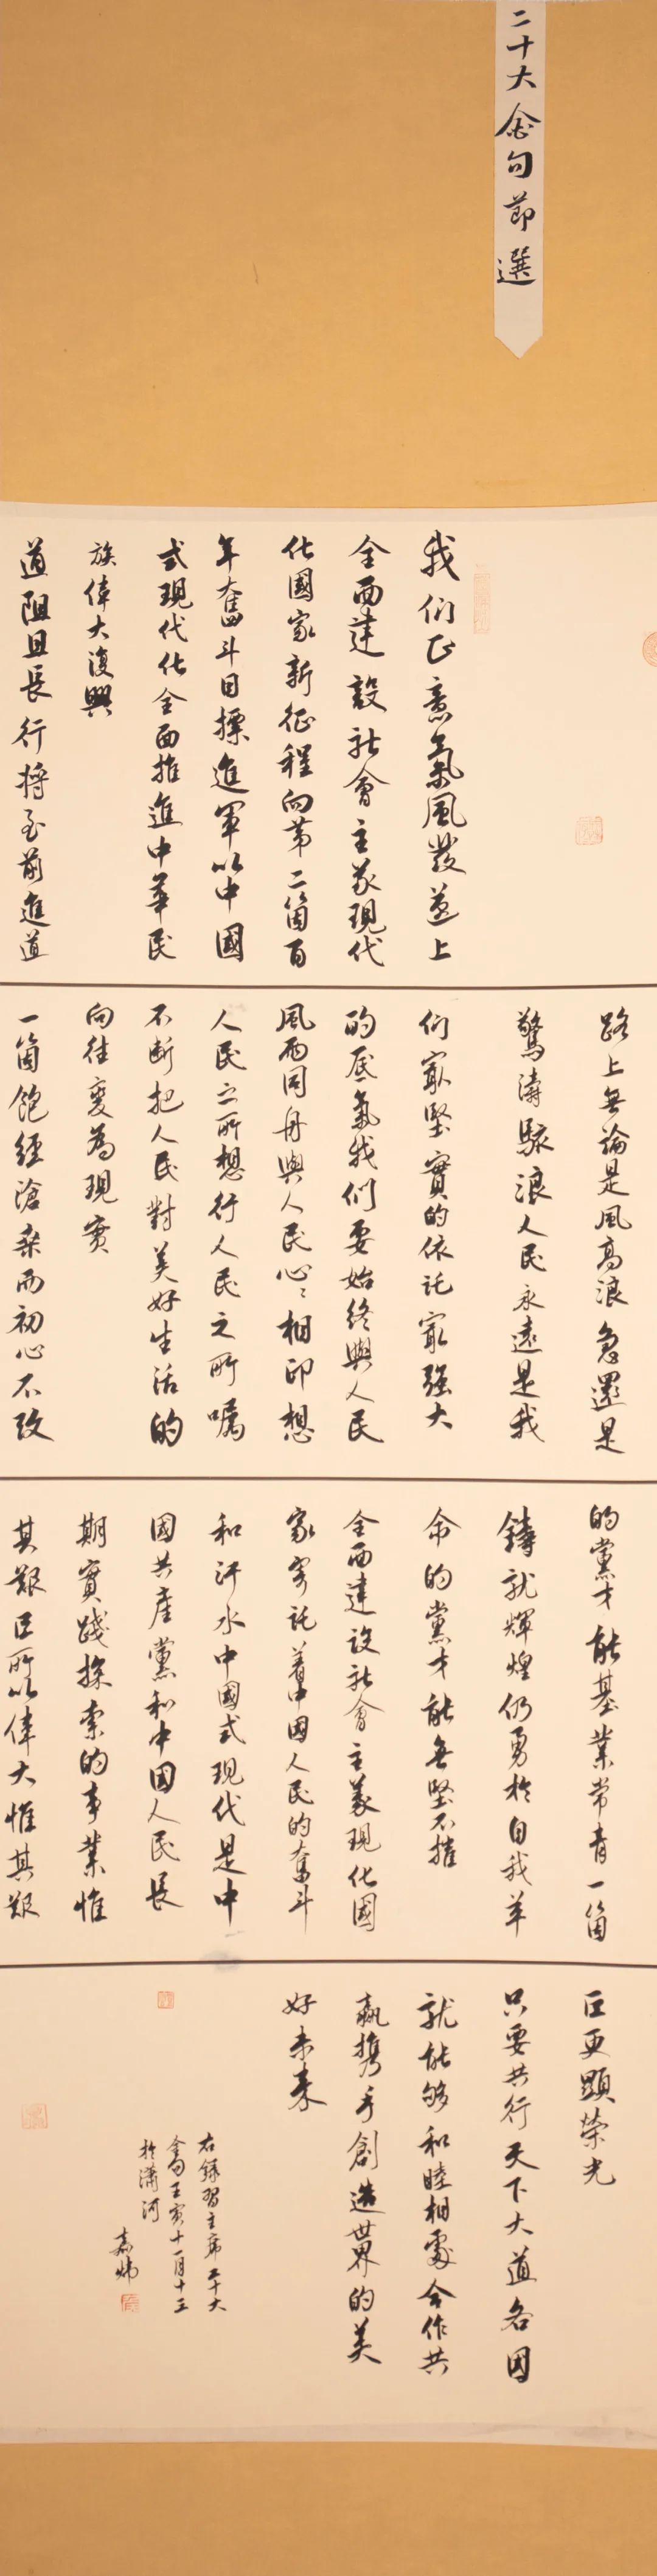 二十大金句節選
我们正意氣風發邁上
全面建設社會主義現代
化國家新征程向第二箇百
年奮斗目標進軍以中國
式現代化全面推進中華民
族偉大復興
道阻且長行將至前進道
路上無論是風高浪急還是
驚濤駭浪人民永遠是我
们最堅實的依託最強大
的底氣我們要始終與人民
風雨同舟與人民心心相印想
人民之所想行人民之所嘱
不斷把人民對美好生活的
向往變為現實
一箇飽經滄桑而初心不改
的黨才能基業常青一箇
鑄就輝煌仍勇於自我革
命的黨才能無堅不摧
全面建設社會主義現化國
家寄託着中国人民的奮斗
和汗水中國式現代是中
國共産黨和中国人民長
期實踐探索的事業惟
其艱巨所以偉大惟其艱
巨更顯榮光
只要共行天下大道各国
就能够和睦相處合作共
贏携手創造世界的美
好未来
右錄習主席二十大
金句壬寅十一月十三
於溝河
嘉炜